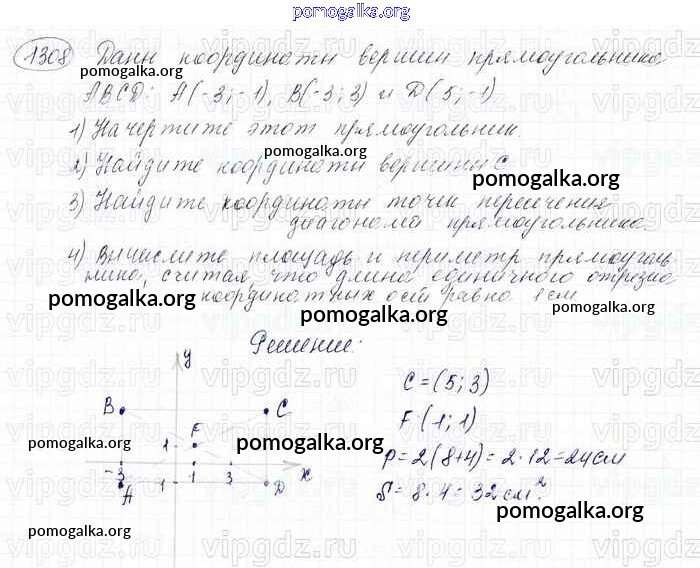 pomogalka.org
1308 Даны координаты вершин прямоугольника
pomogalka.org
ABCD: A(-3;-1), B(-3;3) и D(5;-1)
1) Начертите этот прямоугольник.
2) Найдите координаты вершины C.
pomogalka.org
3) Найдите координаты точки пересечения
диагоналей прямоугольника.
4) Вычислите площадь и периметр прямоуголь-
ника, считая, что длина единичного отрезка
pomogalka.org координатных осей равна 1 см. pomogalka.org
Решение:
y
C = (5; 3)
B C
F (1; 1)
F
pomogalka.org 1 pomogalka.org
P = 2(8+4) = 2·12 = 24 см
-3 1 3 x
A -1 D
S = 8·4 = 32 см²
pomogalka.org
pomogalka.org pomogalka.org
vipgdz.ru